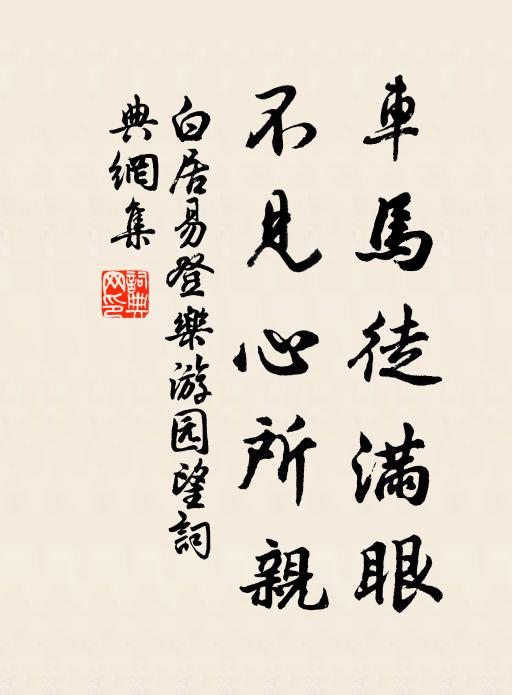 車馬徒滿眼
不見心所親
白居易登樂游园望詞
典網集
詞典
网印